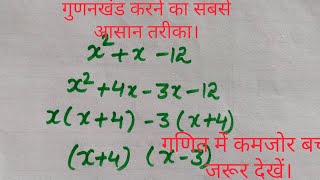 गुणनखंड करने का सबसे
आसान तरीका।
x² + x - 12
x² + 4x - 3x - 12
x(x+4) - 3(x+4)
(x+4) (x-3)
गणित में कमजोर बच
जरूर देखें।